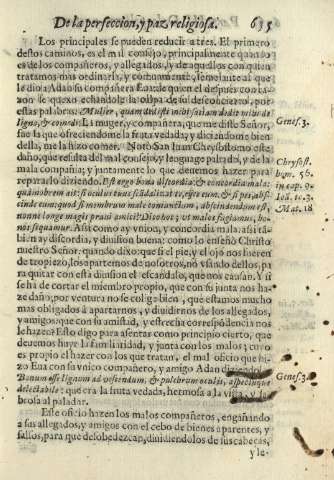 De la perfeccion, y paz religiosa. 635
Los principales se pueden reducir a tres. El primero
destos caminos, es el mal consejo, principalmente quando
es de los compañeros, y allegados, y de aquellos con quien
tratamos mas ordinaria, y comunmente, semejante al que
le dio a Adan su compañera Eua: de quien el despues con ra-
zon se quexo echandole la culpa de su desconcierto, por
estas palabras. Mulier, quam dedisti mihi sociam dedit mihi de
ligno, & comedi. La muger, y compañera, que me diste Señor,
fue la que ofreciendome la fruta vedada, y diciendome bien
della, me la hizo comer. Notò San Iuan Chrysostomo este
daño, que resulta del mal consejo, y lenguaje palzado, y de la
mala compañia; y juntamente lo que deuemos hazer para
repararlo diziendo. Est ergo bona discordia, & concordia mala:
si membrum male coniunctum, abscindendum est
nonne longe magis praui amici?
nos seguamur. Assi como ay vnion, y concordia mala: assi tã-
bien ay discordia, y diuision buena: como lo enseñò Christo
nuestro Señor. quando dixo: que si el pie, y el ojo nos fueren
de tropiezo, los apartemos de nosotros,
ra quitar con esta diuision el escandalo, que nos causan. Y si
se ha de cortar el miembro propio, que con su junta nos ha-
ze daño, por ventura no se colige bien, que estamos mucho
mas obligados à apartarnos, y diuidirnos de los allegados,
y amigos: que con su amistad, y estrecha correspondencia nos
le hazen? Esto digo para assentar como principio cierto, que
deuemos huyr la familiaridad, y junta con los malos;
es propio el hazer con los que tratan, el mal oficio que hi-
zo Eua con su vnico compañero, y amigo Adan diziendole.
Bonum esse lignum ad vescendum, & pulchrum oculis, aspectuque
delectabile: que era la fruta vedada, hermosa a la vista, y
brosa al paladar.
Este oficio hazen los malos compañeros, engañando
a sus allegados, y amigos con el cebo de bienes aparentes, y
falsos, para que desobedezcan, diuidiendolos de sus cabeças,
y le-
Genes. 3.
Chrysost.
hom. 56.
in cap. 9.
Ioā. to. 3.
Mat. 18
Genes. 3.